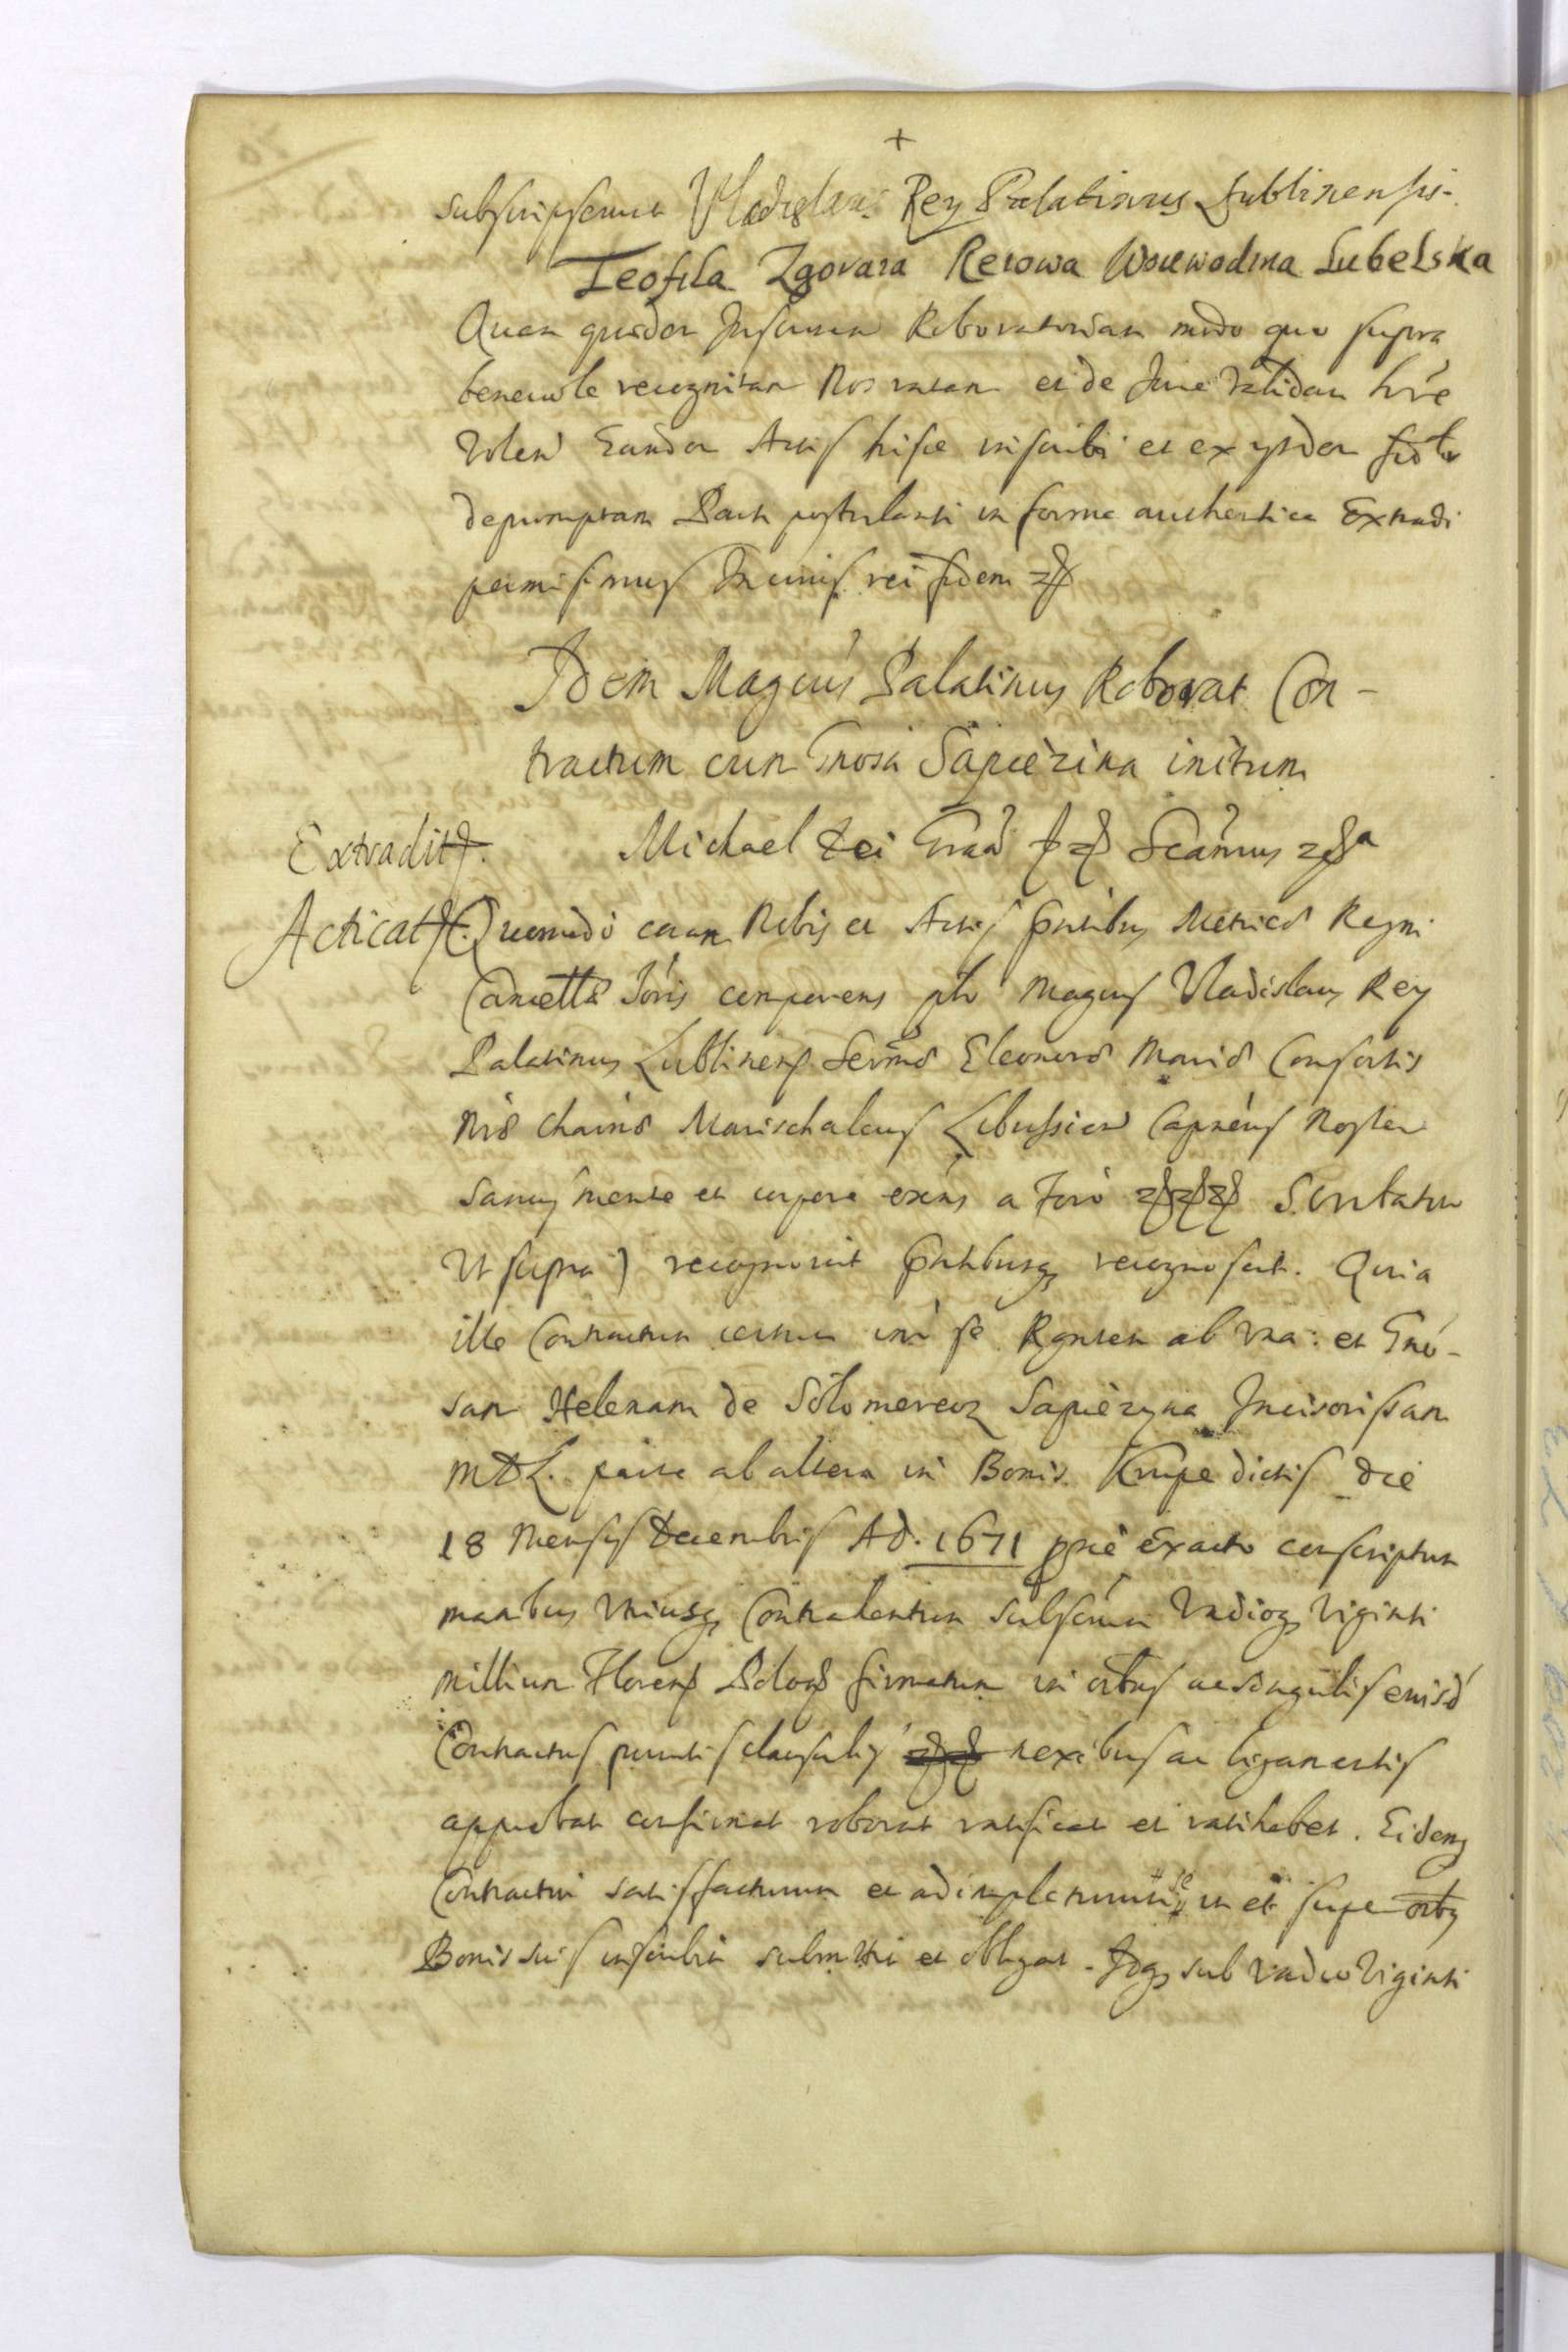 +
subscripserunt Vladislaus Rey Palatinus Lublinensis.
Teofila Zgoraia Reiowa Woiewodzina LubeLska
Quam quidem Inscriptionem Roboratoriam modo quo supra
benevole recognitam Nos ratam et de Iure validam hre
volen Eandem Actis hisce inscribi et ex ysdem fidlr
depromptam Parti postulanti in forma authentica Extradi
permisimus In cuius rei fidem
Idem Magcus Palatinus Roborat Con-
tractum cum Gnosa Sapieżina initum
Extradit.
Michael Dei Graa Scamus
Acticat.
Quomodo coram Nobis et Actis pntibus Metrices Regni
Cancellae Ioris comparens psolr Magcus Vladislaus Rey
Palatinus Lublinens Sermae Eleonorae Mariae Consortis
Nrae Charmae Marischalcus Libussien Capneus Noster
sanus mente et corpore exens a Foro
Ut supra) recognovit pntibusq recognoscit. Quia
ille Contractum certum inr se Rgntem ab una: et Gno-
sam Helenam de Solomerecz Sapieżyna Incisorissam
MDL. parte ab altera in Bonis Krupe dictis die
18 Mensis Decembris Ad. 1671 prae Exacto conscriptum
manibus Utriusq Contrahentium Vadioq Viginti
millium Florens Polos firmatum in oibus ac singulis euisd
Contractus punctis clausulis nexibus ac ligamentis
approbat confirmat roborat ratificat et ratihabet. Eidemq
Contractui satisfacturum et adimpleturum se in et super oibus
Bonis suis inscribit submittit et obligat. Idq sub vadio Viginti